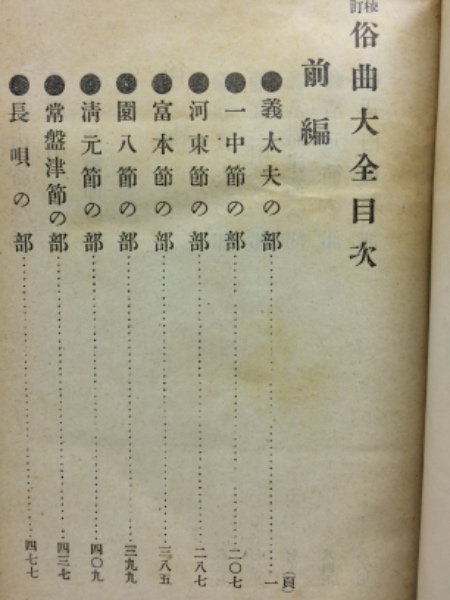 校訂
俗曲大全目次
前編
●義太夫の部…………一(頁)
●一中節の部…………二〇七
●河東節の部…………二八七
●富本節の部…………三八五
●薗八節の部…………三九九
●清元節の部…………四〇九
●常盤津節の部…………四三七
●長唄の部…………四七七